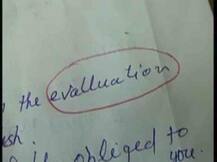 the evalluation
obliged to
you.